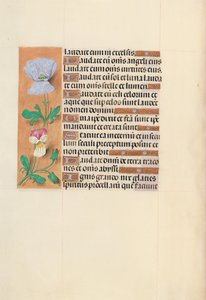 laudate eum in excelsis
Laudate eum om̄s angeli eius
laudate eum om̄s virtutes eius
Laudate eū sol et luna lauda
te eum om̄s stelle et lumen
Laudate eū celi celorum et
aque que sup celos sunt laudent
nomen domini
Quia ipse dixit et facta sunt ip̄e
mandauit et creata sunt
Statuit ea in eternū et in secu
lum seculi preceptum posuit et
non preteribit
Laudate dn̄m de terra draco
nes et om̄s abyssi
Ignis grando nix glacies
spiritus procellarū que faciunt